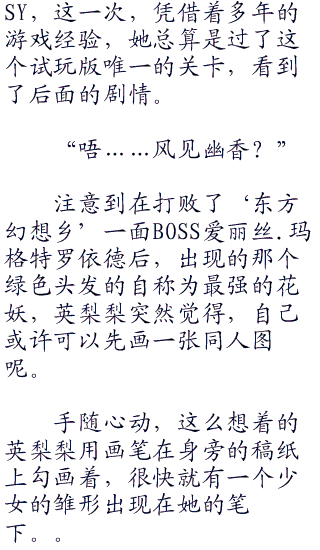 SY，这一次，凭借着多年的
游戏经验，她总算是过了这
个试玩版唯一的关卡，看到
了后面的剧情。
“唔……风见幽香？”
注意到在打败了‘东方
幻想乡’一面BOSS爱丽丝.玛
格特罗依德后，出现的那个
绿色头发的自称为最强的花
妖，英梨梨突然觉得，自己
或许可以先画一张同人图
呢。
手随心动，这么想着的
英梨梨用画笔在身旁的稿纸
上勾画着，很快就有一个少
女的雏形出现在她的笔
下。。